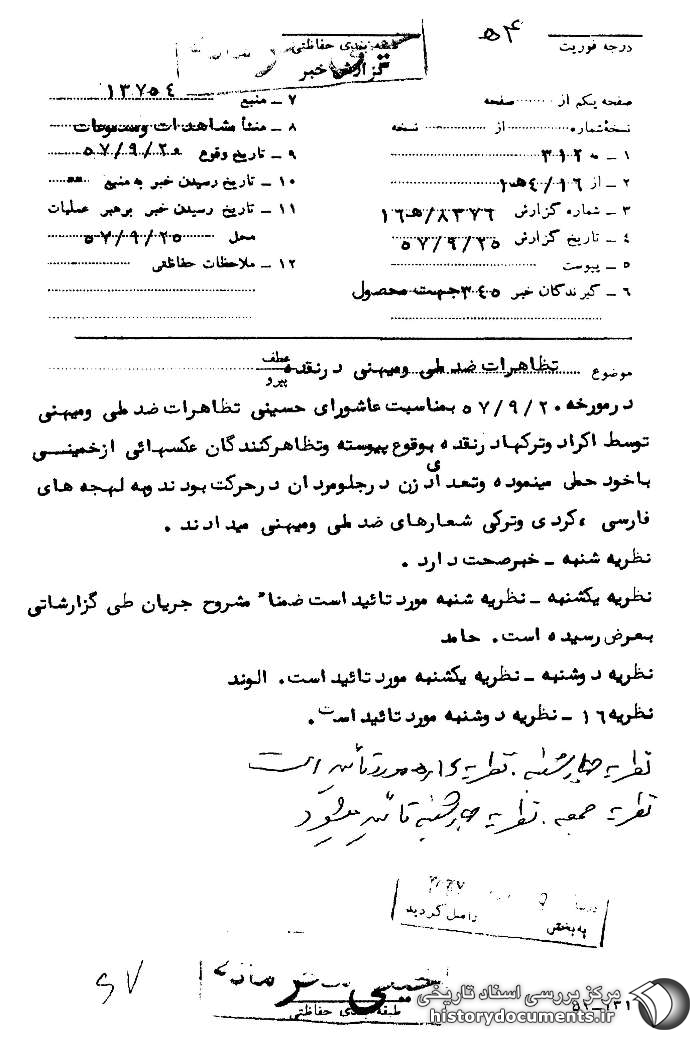 درجه فوریت
۵۴
طبقه بندی حفاظتی
گزارش خبر
صفحه یکم از ........ صفحه
نسخه شماره ........ از ........ نسخه
۱ ـ به ۳۱۲
۲ ـ از ۱۶/۴ه‍۱
۳ ـ شماره گزارش ۸۳۷۶/ه‍۱۶
۴ ـ تاریخ گزارش ۵۷/۹/۲۵
۵ ـ پیوست
۶ ـ گیرندگان خبر ۳۴۵ جهت محصول
۷ ـ منبع ۱۳۷۵۴
۸ ـ منشأ مشاهدات ومسموعات
۹ ـ تاریخ وقوع ۵۷/۹/۲۰
۱۰ ـ تاریخ رسیدن خبر به منبع
۱۱ ـ تاریخ رسیدن خبر برهبر عملیات
محل ۵۷/۹/۲۵
۱۲ ـ ملاحظات حفاظتی
موضوع تظاهرات ضد ملی ومیهنی درنقده
عطف
پیرو
درمورخه ۵۷/۹/۲۰ بمناسبت عاشورای حسینی تظاهرات ضد ملی ومیهنی
توسط اکراد وترکهادرنقده بوقوع پیوسته وتظاهرکنندگان عکسهائی ازخمینی
باخود حمل مینموده وتعدادی زن درجلومردان درحرکت بودند وبه لهجه های
فارسی ،کردی وترکی شعارهای ضد ملی ومیهنی میدادند .
نظریه شنبه ـ خبرصحت دارد .
نظریه یکشنبه ـ نظریه شنبه مورد تائید است ضمناً مشروح جریان طی گزارشاتی
بعرض رسیده است. حامد
نظریه دوشنبه ـ نظریه یکشنبه مورد تائید است. الوند
نظریه ۱۶ ـ نظریه دوشنبه مورد تائید است.
نظریه چهارشنبه . نظریه ۱۶ ه‍ مورد تأیید است
نظریه جمعه . نظریه چهارشنبه تائید میشود
به بخش
واصل گردید
خیلی محرمانه
طبقه بندی حفاظتی
مرکز بررسی اسناد تاریخی
historydocuments.ir